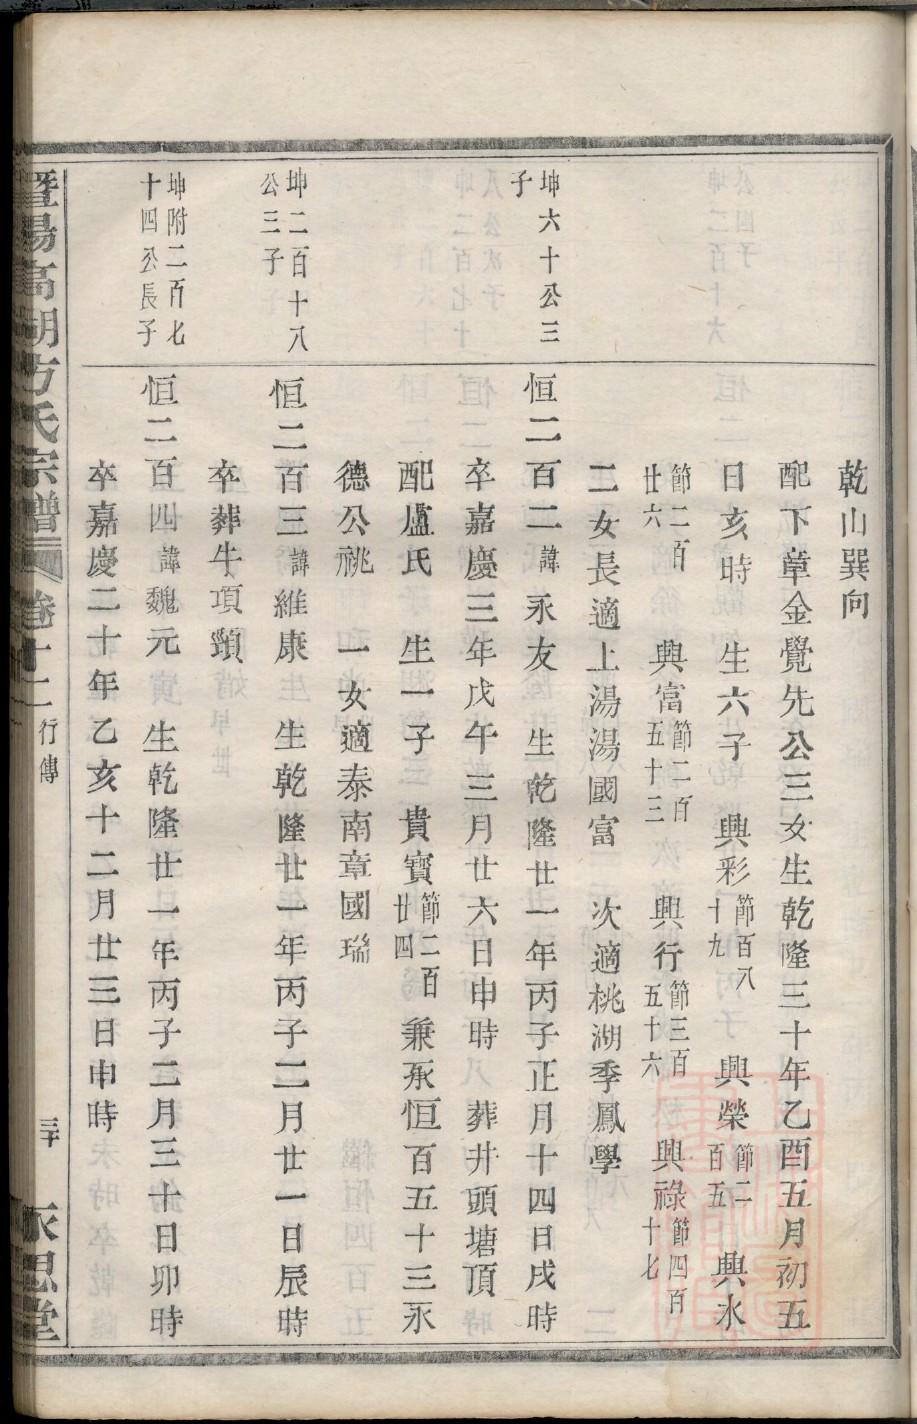 乾山巽向
配下章金覺先公三女生乾隆三十年乙酉五月初五
日亥時　生六子　興彩節百八十九　興榮節二百五　興水
節二百廿六　興富節二百五十三　興行節三百五十六　興祿節四百十七
二女長適上湯湯國富　次適桃湖季鳳學
坤六十公三子
恒二百二諱永友　生乾隆廿一年丙子正月十四日戌時
卒嘉慶三年戊午三月廿六日申時　葬井頭塘頂
配盧氏　生一子　貴寶節二百廿四　兼承恒百五十三永
德公祧　一女適泰南章國瑞
坤二百十八公三子
恒二百三諱維康　生乾隆廿一年丙子二月廿一日辰時
卒葬牛項頸
坤附二百七十四公長子
恒二百四諱魏元　生乾隆廿一年丙子二月三十日卯時
卒嘉慶二十年乙亥十二月廿三日申時
暨陽高湖方氏宗譜　卷十二　行傳　三十　永思堂